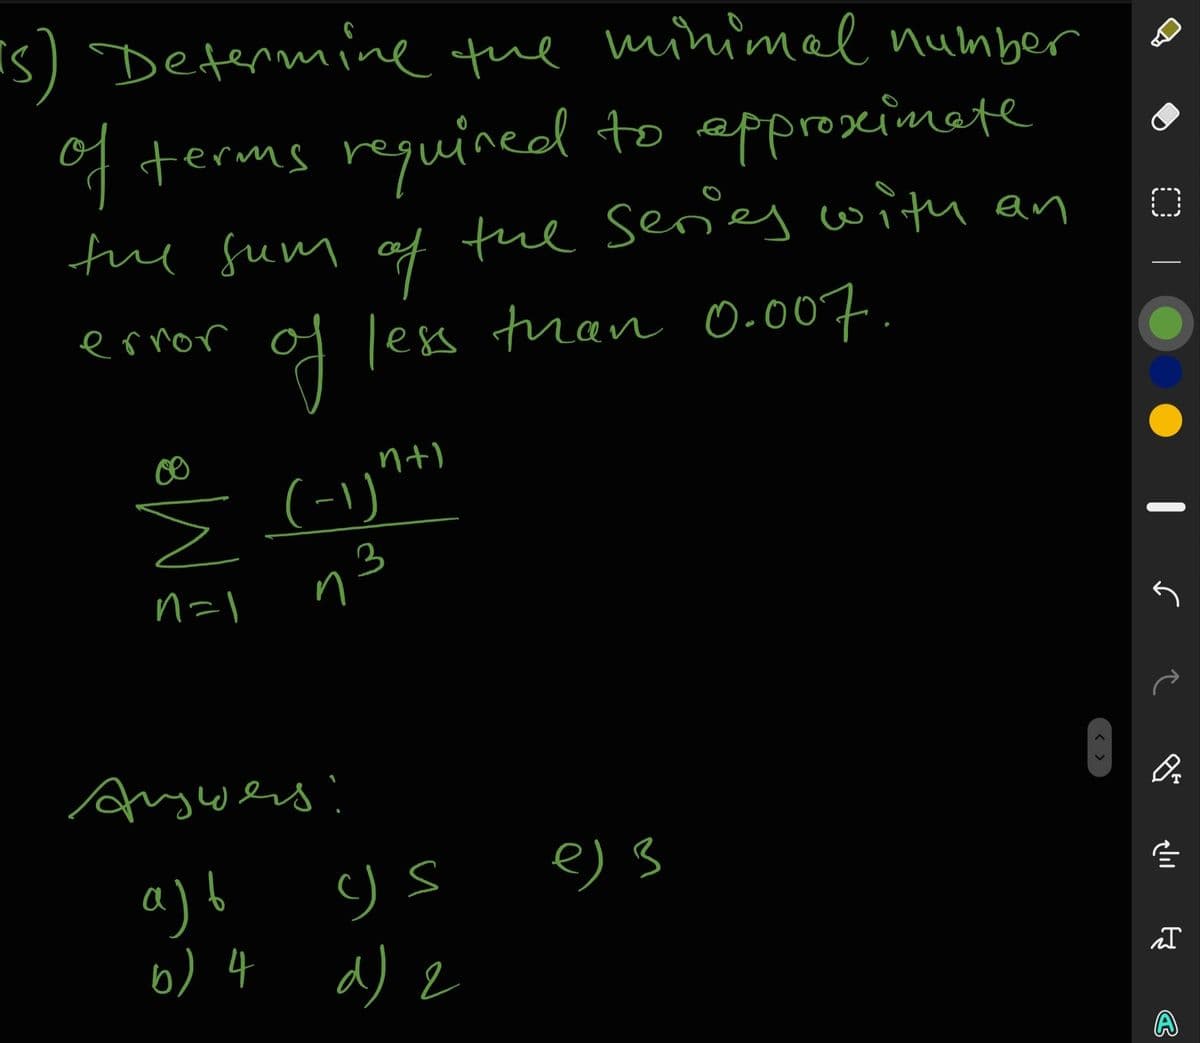 15) Determine the minimal number
of terms required to approximate
the sum of the series with an
error of less than 0.007.
∞
∑ (-1)^{n+1} / n^3
n=1
Answers:
a) 6 c) 5 e) 3
b) 4 d) 2